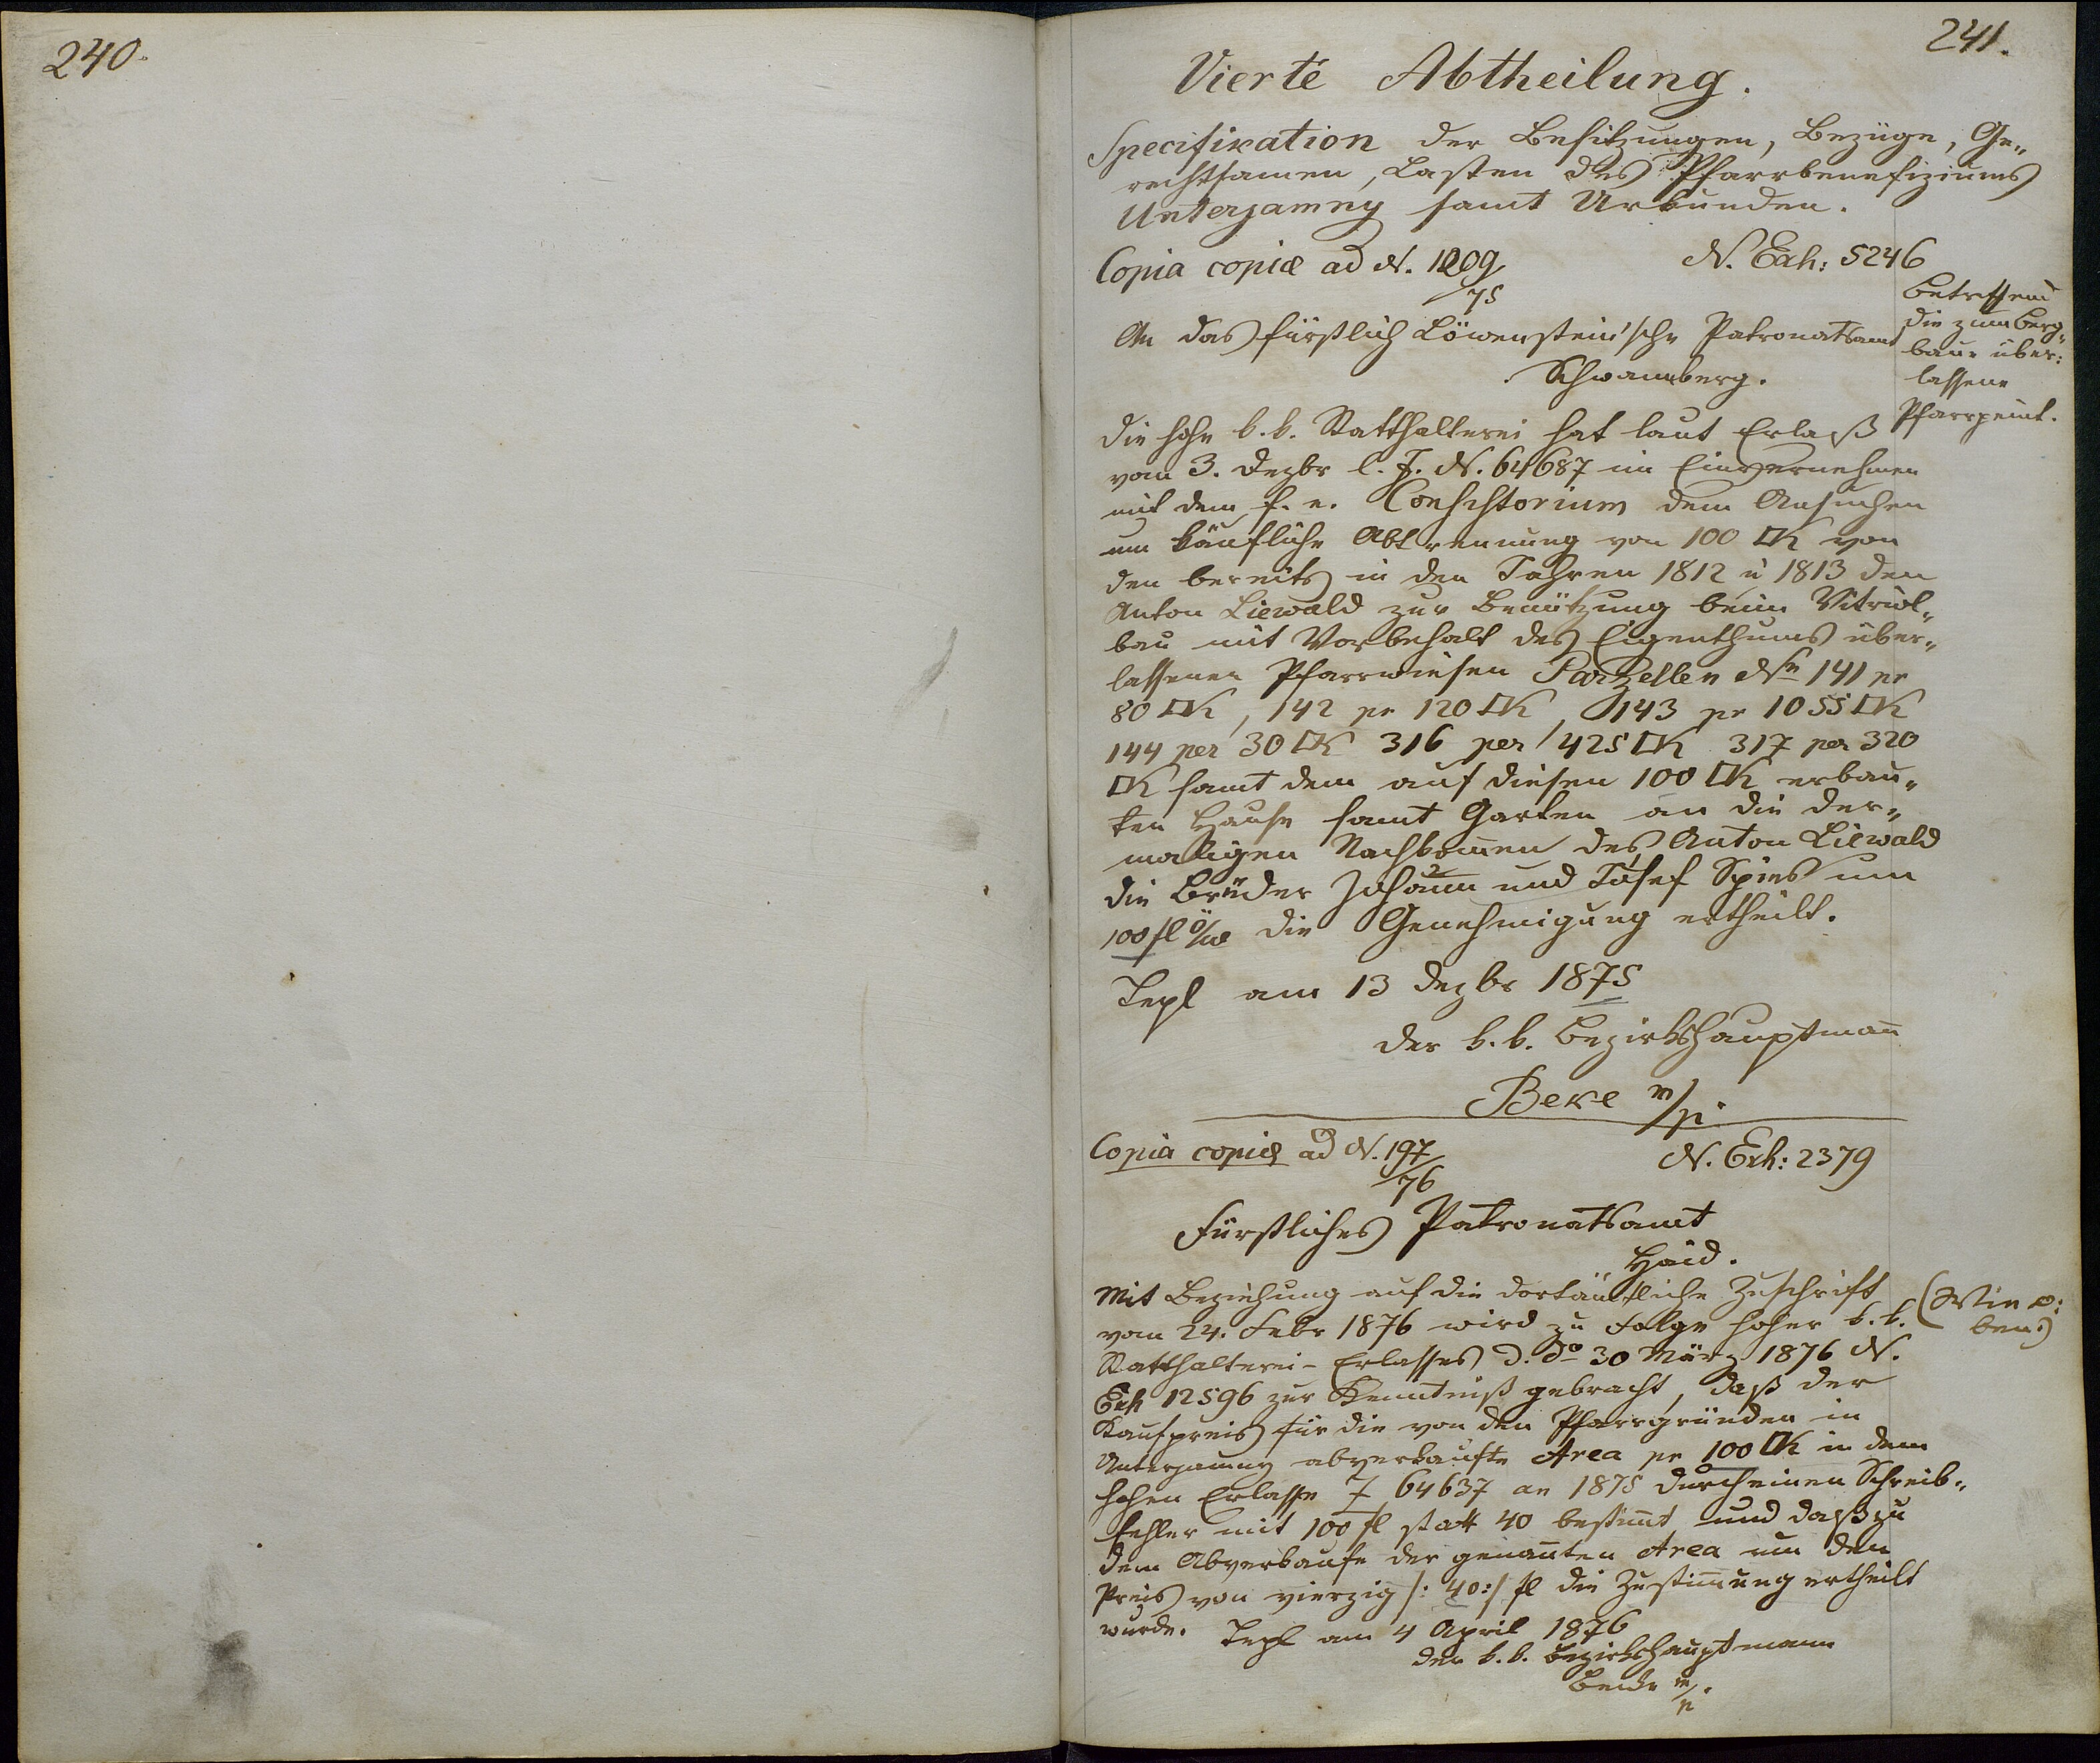 240.
241.
Vierte Abtheilung.
Specifikation der Besitzungen, Bezüge, Ge„
rechtsamen, Lasten des Pfarrbenefiziums
Unterjamny samt Urkunden.
Copia copiæ ad N. 1209/75 N. Exh: 5246
An das fürstlich Löwenstein'sche Patronatsamt
Schwamberg.
Betreffend
die zum Berg„
baue über:
lassene
Pfarrpeint.
Die hohe k.k. Statthalterei hat laut Erlaß
vom 3. Dezbr l. J. N. 64687 im Einvernehmen
mit dem f. e. Consistorium dem Ansuchen
um käufliche Abtrennung von 100 □K von
den bereits in den Jahren 1812 u 1813 den
Anton Liewald zur Benützung beim Vitriol„
bau mit Vorbehalt des Eigenthums über„
lassenen Pfarrwiesen Parzellen N 141 pr
80 □K, 142 pr 120 □K, 143 pr 1055 □K
144 per 30 □K 316 per 425 □K 317 per 320
□K samt dem auf diesen 100 □K erbau„
ten Hause samt Garten an die der„
maligen Nachkomen des Anton Liewald
die Brüder Johann und Josef Spies um
100 fl ö/w die Genehmigung ertheilt.
Tepl am 13 Dezbr 1875
Der k.k. Bezirkshauptmann
m/p.
Copia copiæ ad N. 197/76 N. Exh: 2379
Fürstliches Patronatsamt
Haid.
Mit Beziehung auf die dortämtliche Zuschrift
vom 24. Febr 1876 wird zu Folge hoher k.k.
(Wie o:
ben.)
Statthalterei-Erlasses d. do 30 März 1876 N.
Exh 12596 zur Kenntniß gebracht, daß der
Kaufpreis für die von den Pfarrgründen in
Unterjamny abverkaufte Area pr 100 □K in dem
hohen Erlasse Z 64637 an 1875 durch einen Schreib„
fehler mit 100 fl statt 40 bestimt und daß zu
dem Abverkaufe der genanten Area um den
Preis von vierzig /: 40 :/ fl die Zustimung ertheilt
wurde. Tepl am 4 April 1876
Der k.k. Bezirkshauptmann
m/p.